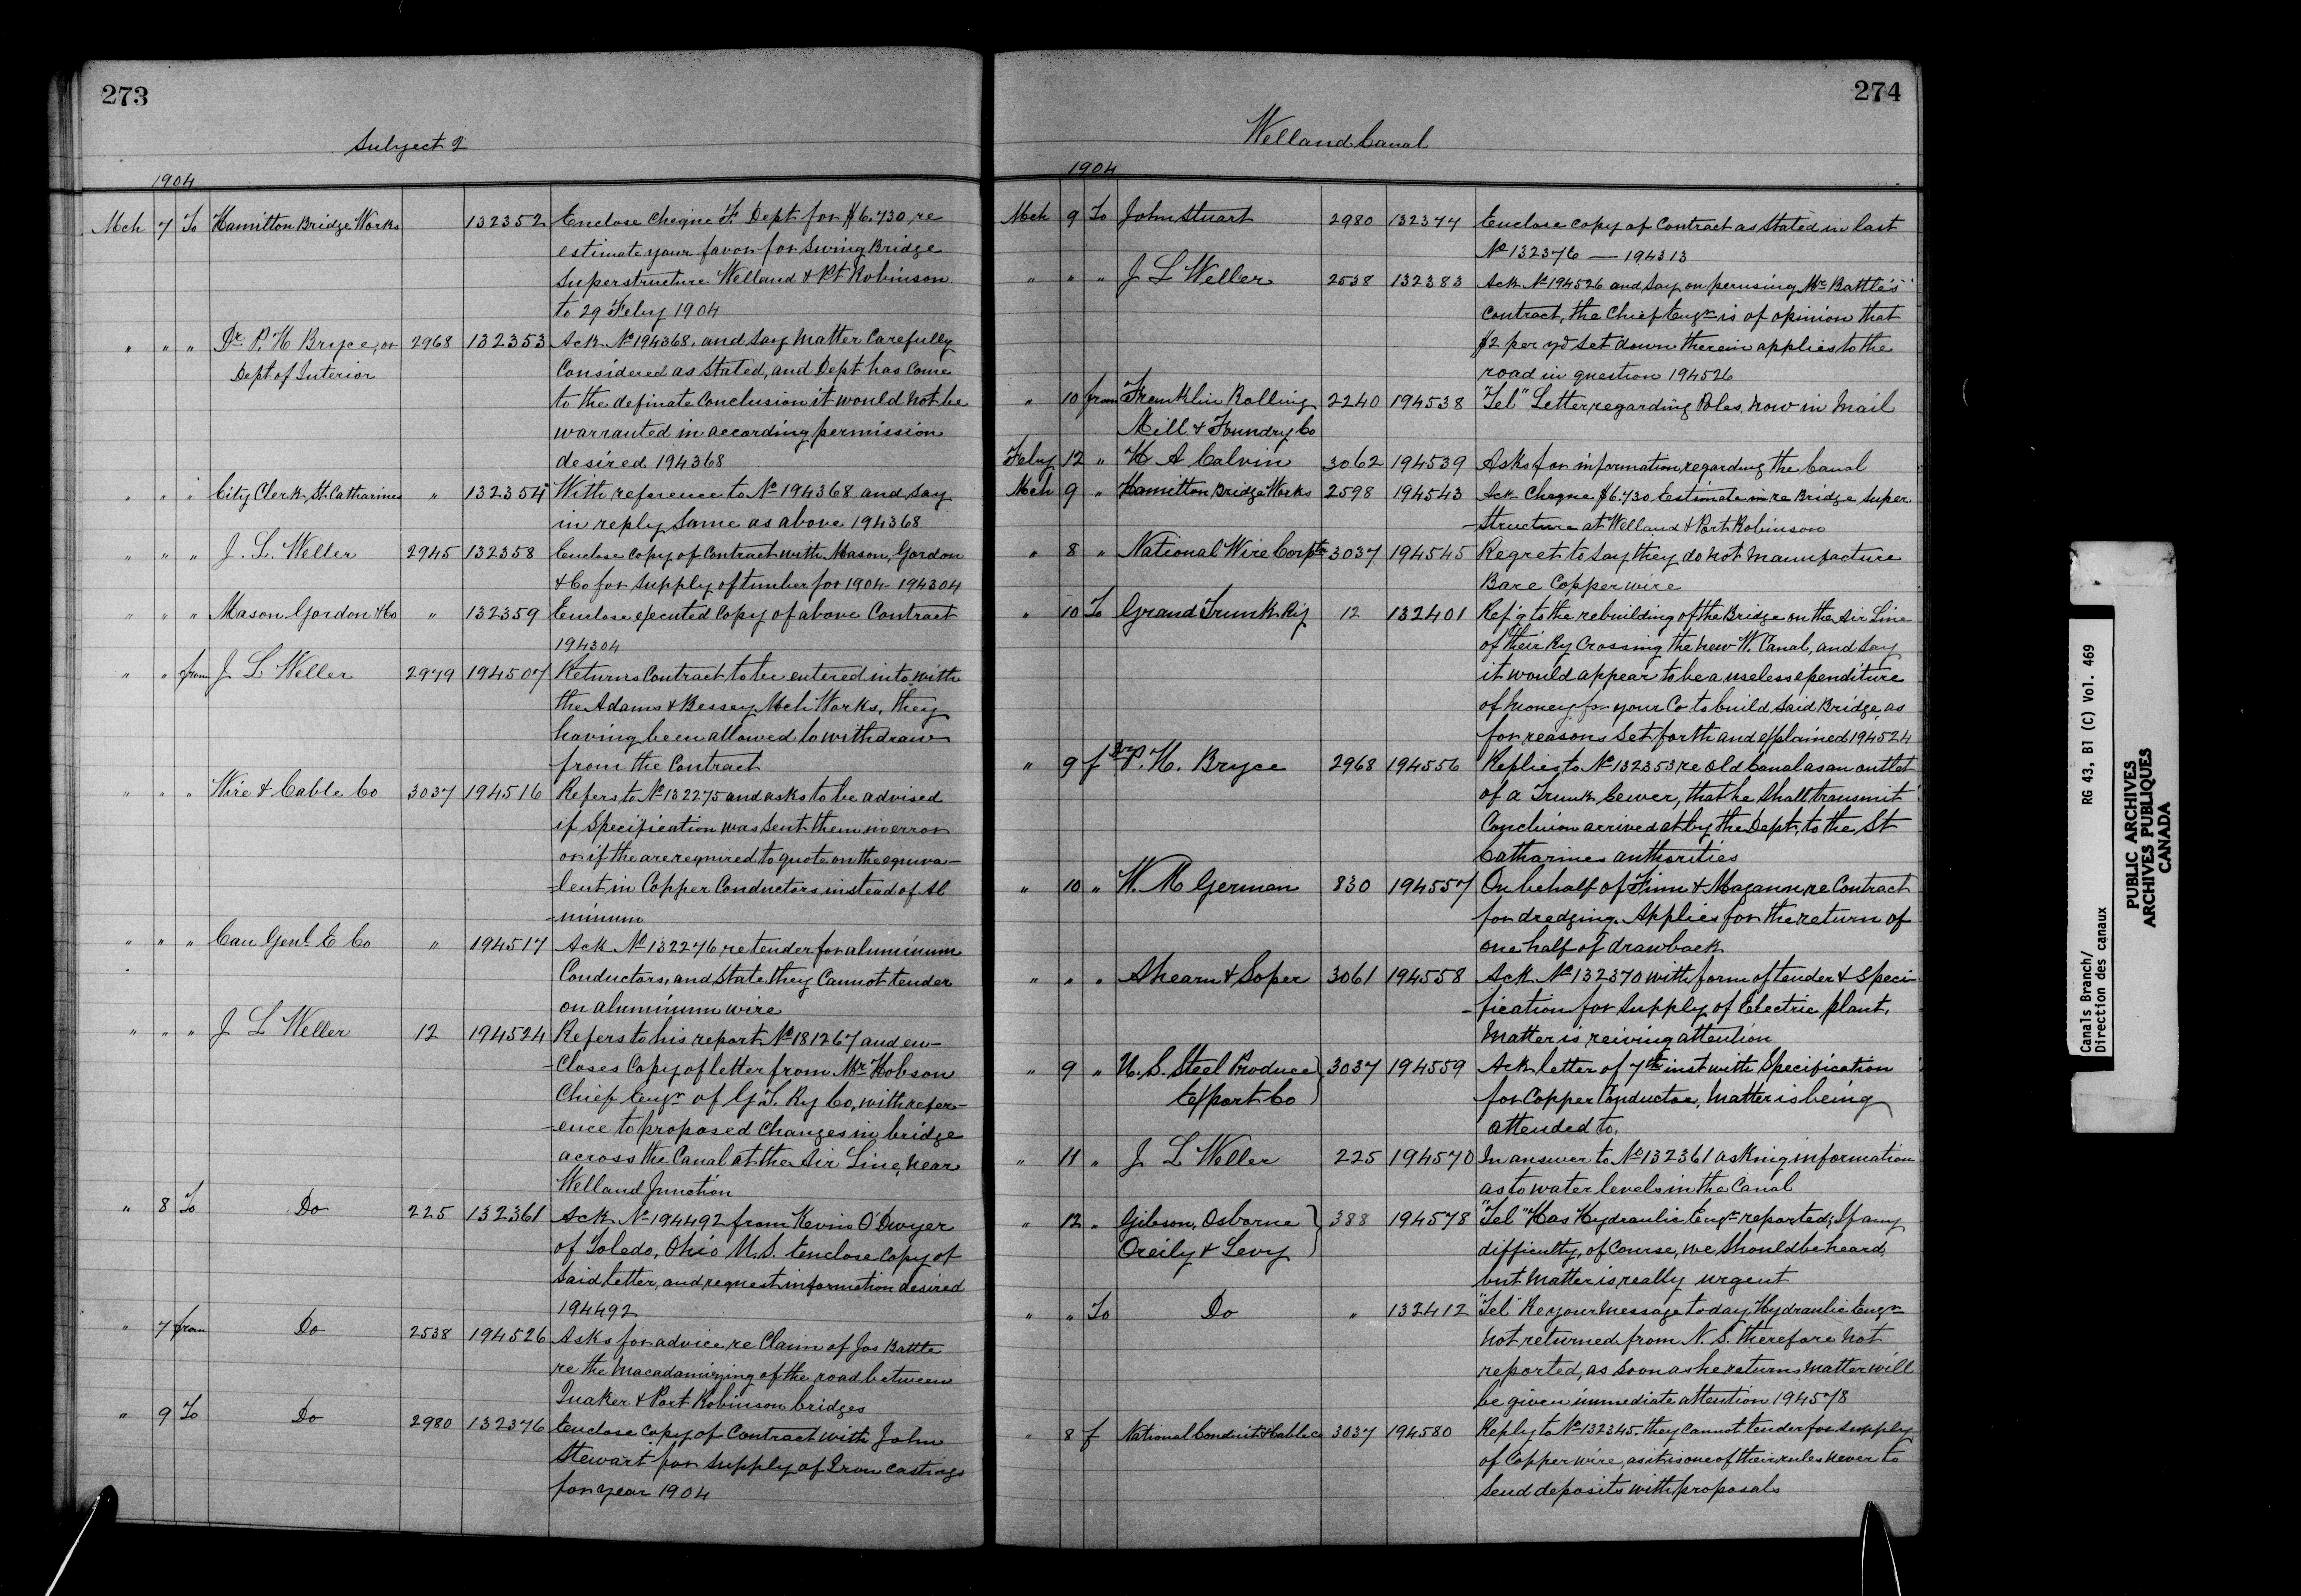 273
Subject 2
1904
Mch 7 To Hamilton Bridge Works 132352 Enclose Cheque F. Dept. for $6.730 re
estimate your favor for Swing Bridge
Superstructure Welland & Pt Robinson
to 29 Feby 1904
" " " Dr P. H Bryce, 2968 132353 Ack No 194368, and say matter Carefully
Dept of Interior Considered as stated, and Dept has Come
to the definate Conclusion it would not be
warranted in according permission
desired 194368
" " " City Clerk, St Catharines " 132354 With reference to No 194368 and say
in reply same as above 194368
" " " J. L. Weller 2945 132358 Enclose copy of Contract with Mason, Gordon
& Co for supply of timber for 1904 - 194304
" " " Mason Gordon & Co " 132359 Enclose executed Copy of above Contract
194304
" " from J L Weller 2979 194507 Returns Contract to be entered into with
the Adams & Bessey Mch Works, they
having been allowed to withdraw
from the Contract
" " " Wire & Cable Co 3037 194516 Refers to No 132275 and asks to be advised
if Specification was sent them in error
or if the are required to quote on the equiva-
-lent in Copper Conductors instead of Al
-minum
" " " Can Genl E Co " 194517 Ack No 132276 re tender for aluminum
Conductors, and state they Cannot tender
on aluminum wire
" " " J L Weller 12 194524 Refers to his report No 181267 and en-
-closes Copy of letter from Mr Hobson
Chief Engr of G. T. Ry Co, with refer-
-ence to proposed Changes in bridge
across the Canal at the Air Line, near
Welland Junction
" 8 To Do 225 132361 Ack No 194492 from Kevin O'Dwyer
of Toledo, Ohio U.S. Enclose Copy of
said letter, and request information desired
194492
" 7 from Do 2538 194526 Asks for advice re Claim of Jas Battle
re the Macadamizing of the road between
Quaker & Port Robinson bridges
" 9 To Do 2980 132376 Enclose Copy of Contract with John
Stewart for supply of Iron Castings
for year 1904
274
Welland Canal
1904
Mch 9 To John Stuart 2980 132377 Enclose copy of Contract as stated in last
No 132376 — 194313
" " " J L Weller 2538 132383 Ack No 194526 and say on perusing Mr Battle's
Contract, the Chief Engr is of opinion that
$2 per yd set down therein applies to the
road in question 194526
" 10 from Franklin Rolling 2240 194538 "Tel" Letter, regarding Poles, now in Mail
Mill & Foundry Co
Feby 12 " H A Calvin 3062 194539 Asks for information regarding the Canal
Mch 9 " Hamilton Bridge Works 2598 194543 Ack Cheque $6.730 Estimate in re Bridge Super
-structure at Welland & Port Robinson
" 8 " National Wire Corptn 3037 194545 Regret to say they do not manufacture
Bare Copper wire
" 10 To Grand Trunk Ry 12 132401 Ref'g to the rebuilding of the Bridge on the Air Line
of their Ry Crossing the new W. Canal, and say
it would appear to be a useless ependiture
of money for your Co to build said Bridge, as
for reasons set forth and explained 194524
" 9 f Dr P. H. Bryce 2968 194556 Replies to No 132353 re old Canal as an outlet
of a Trunk Sewer, that he shall transmit
Conclusion arrived at by the Dept, to the St
Catharines authorities
" 10 " W. M German 830 194557 On behalf of Finn & Magann re Contract
for dredging. Applies for the return of
one half of drawback
" " " Ahearn & Soper 3061 194558 Ack No 132370 with form of tender & Speci-
-fication for supply of Electric plant,
Matter is reiving attention
" 9 " U. S. Steel Produce 3037 194559 Ack letter of 7th inst with Specification
Export Co for Copper Conductor, Matter is being
attended to.
" 11 " J L Weller 225 194570 In answer to No 132361 asking information
as to water levels in the Canal
" 12 " Gibson, Osborne 388 194578 "Tel" Has Hydraulic Engr reported; If any
Oreily & Levy difficulty, of Course, we should be heard,
but Matter is really urgent
" " To Do " 132412 "Tel" Re your message today, Hydraulic Engr
not returned from N. S. therefore not
reported, as soon as he returns matter will
be given immediate attention 194578
" 8 f National Conduit & Cable Co 3037 194580 Reply to No 132345. they Cannot tender for supply
of Copper wire, as it is one of their rules never to
send deposits with proposals
Canals Branch/ RG 43, B1 (C) Vol. 469
Direction des canaux
PUBLIC ARCHIVES
ARCHIVES PUBLIQUES
CANADA